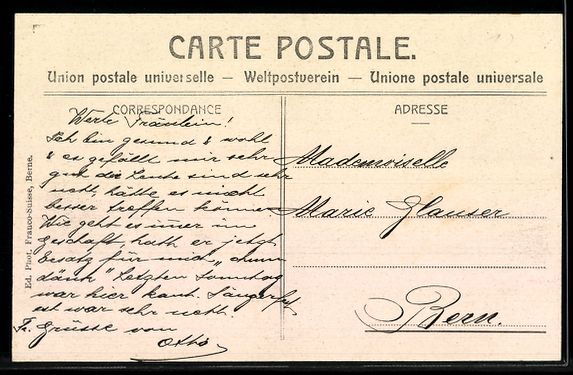 CARTE POSTALE.
Union postale universelle — Weltpostverein — Unione postale universale
CORRESPONDANCE
ADRESSE
Werte Fräulein!
Ich bin gesund & wohl
& es gefällt mir sehr
gut die Leute sind sehr
nett, hätte es nicht
besser treffen können
Wie geht es immer im
Geschäft, hath er jetzt
Ersatz für mich,
Letzten Sonntag
war hier kant. Sängerfest
est war sehr nett.
Fr. Grüsse von
Otto
Mademoiselle
Marie Glauser
Bern.
Ed. Phot. Franco-Suisse, Berne.